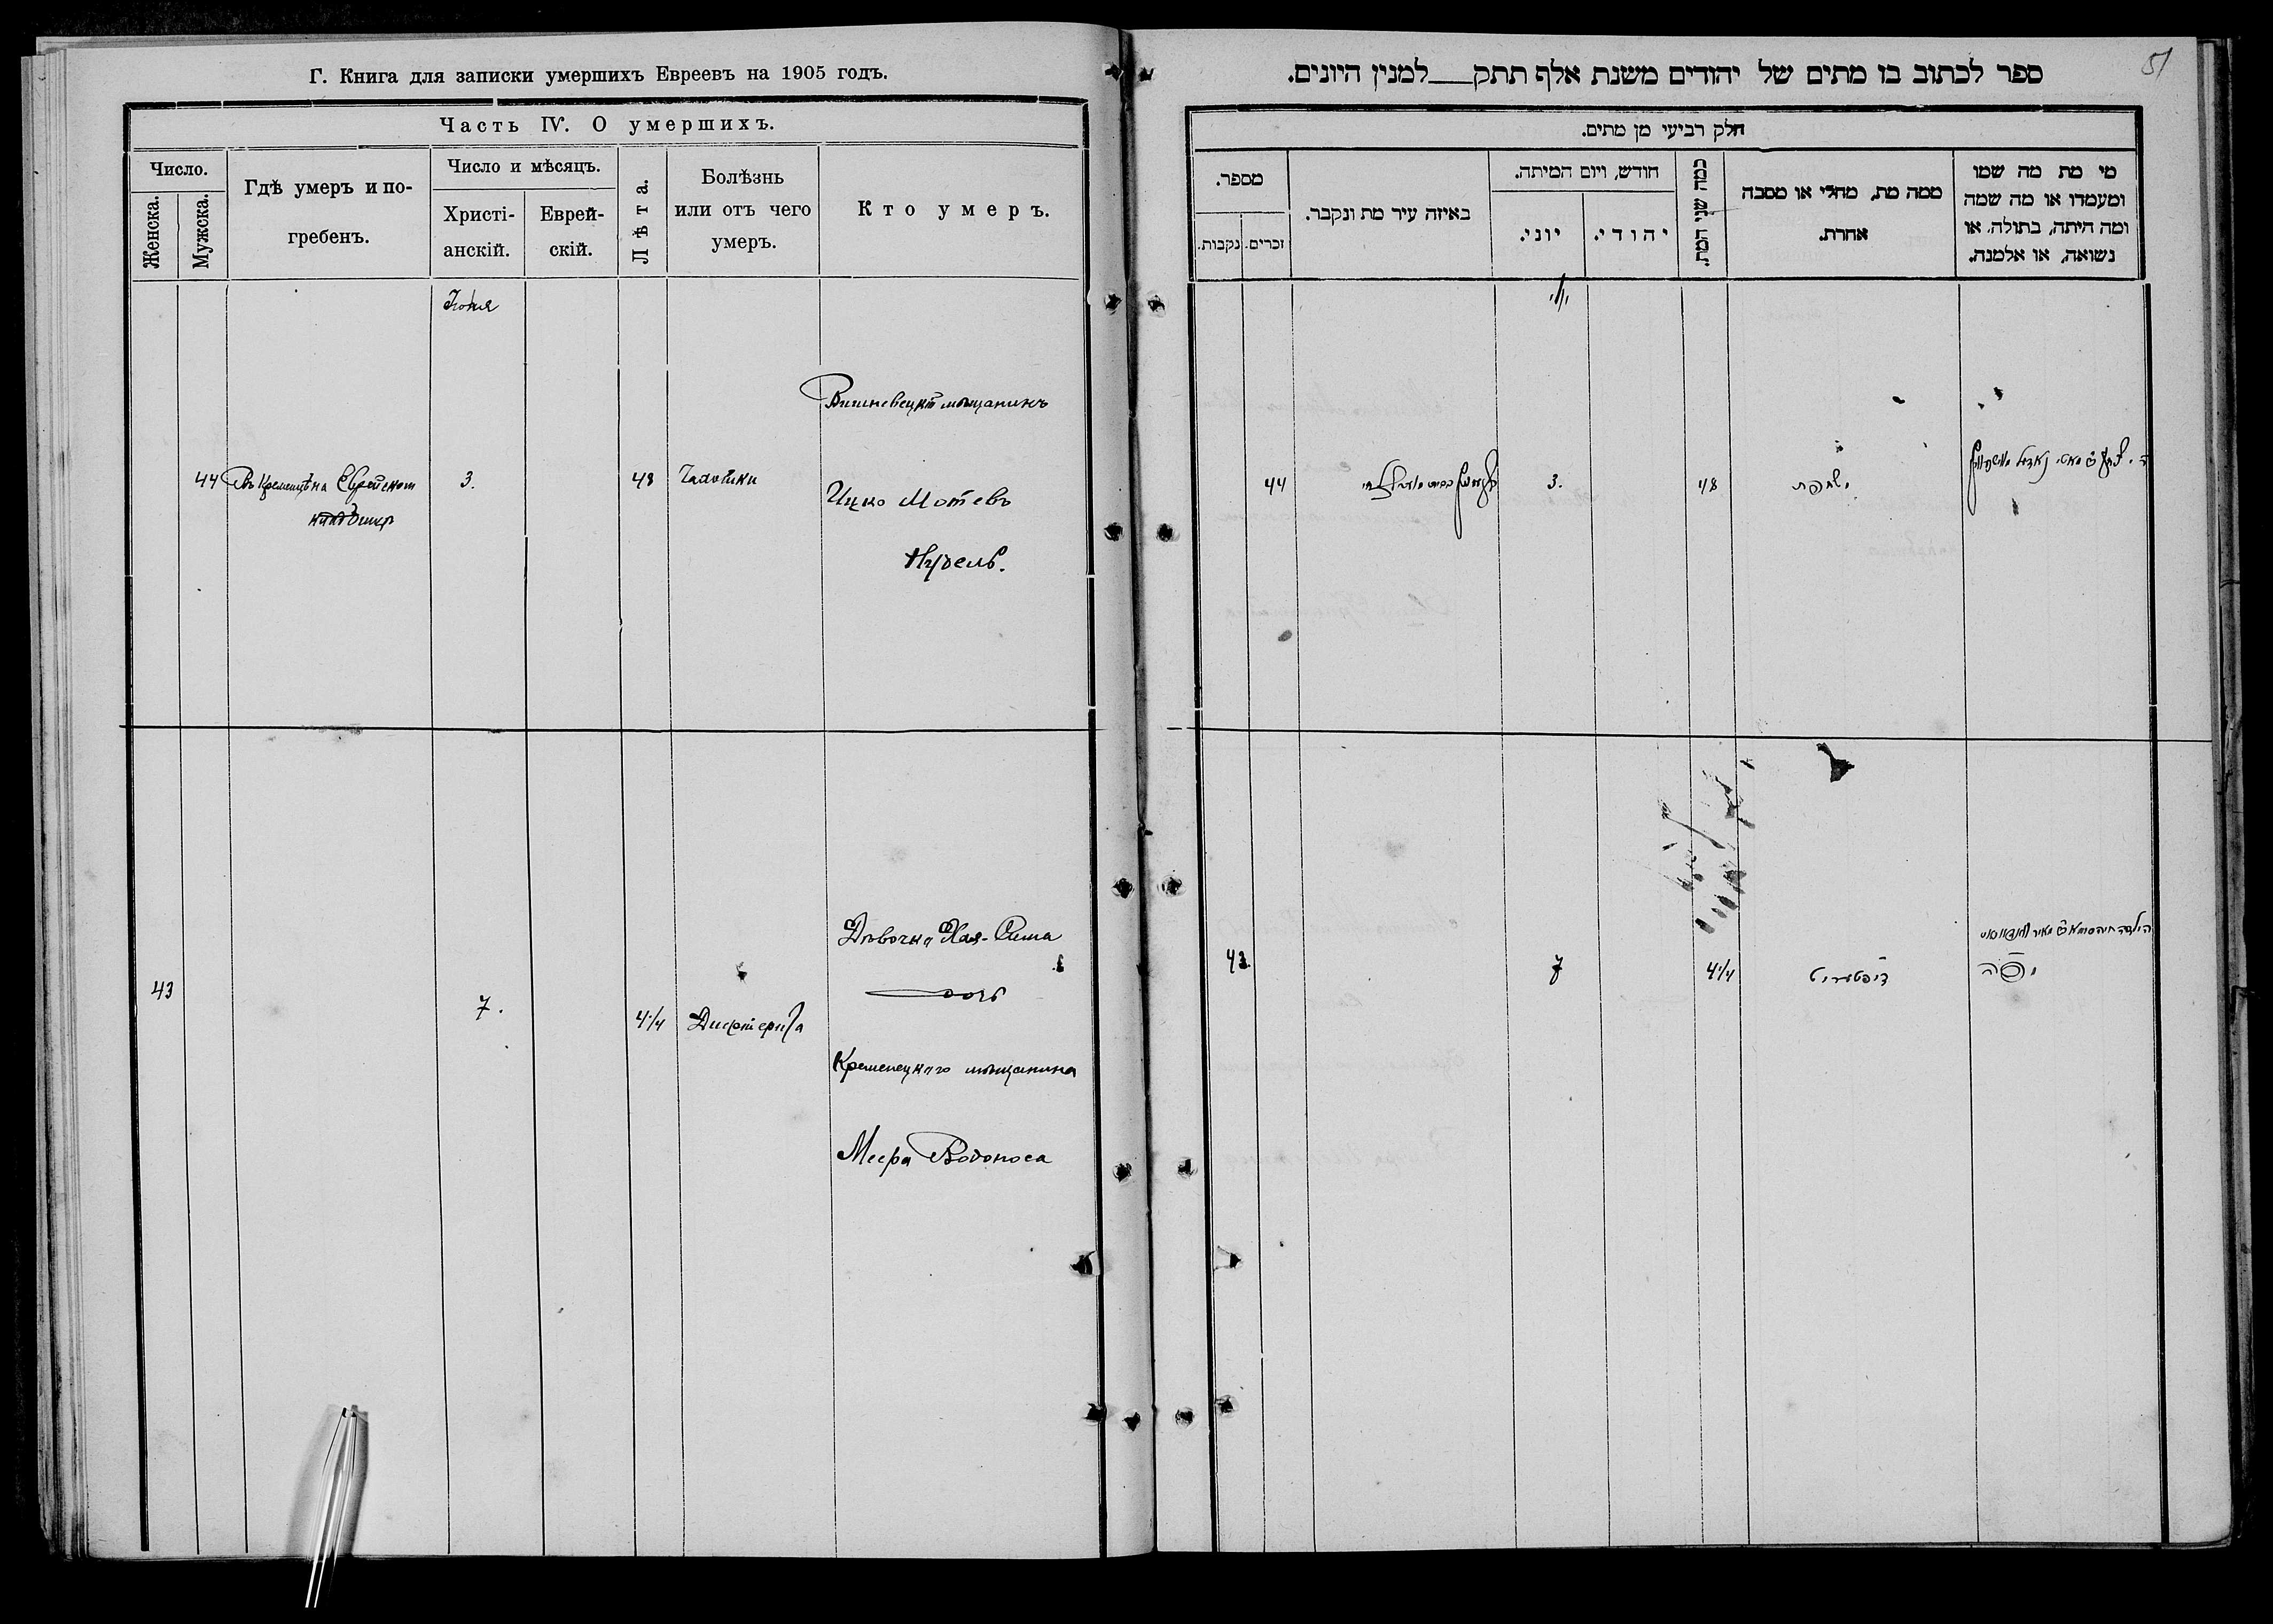 Г. Книга для записки умершихъ Евреевъ на 1905 годъ.
Часть IV. О умершихъ.
Число.
Женска.
Мужска.
Гдѣ умеръ и по-
гребенъ.
Число и мѣсяцъ.
Христі-
анскій.
Еврей-
скій.
Лѣта.
Болѣзнь
или отъ чего
умеръ.
Кто умеръ.
Іюня
Вишневецкій мѣщанинъ
44 Въ Кременцѣ на Еврейском 3. 48 Чахотки
Ицко Мотевъ
Нудель.
Дѣвочка Хая-Сима
43 7. 4 1/4 Дифтерита
дочь
Кременецкаго мѣщанина
Меера Водоноса
51
ספר לכתוב בו מתים של יהודים משנת אלף תתק למנין היונים.
חלק רביעי מן מתים.
מספר.
נקבות.
זכרים.
באיזה עיר מת ונקבר.
חודש, ויום המיתה.
יוני.
יהודי.
כמה שני המת.
ממה מת, מחלי או מסבה
אחרת.
מי מת מה שמו
ומעמדו או מה שמה
ומה היתה, בתולה, או
נשואה, או אלמנה.
יוני
44 3. 48
43 7 4 1/4 דיפטעריט